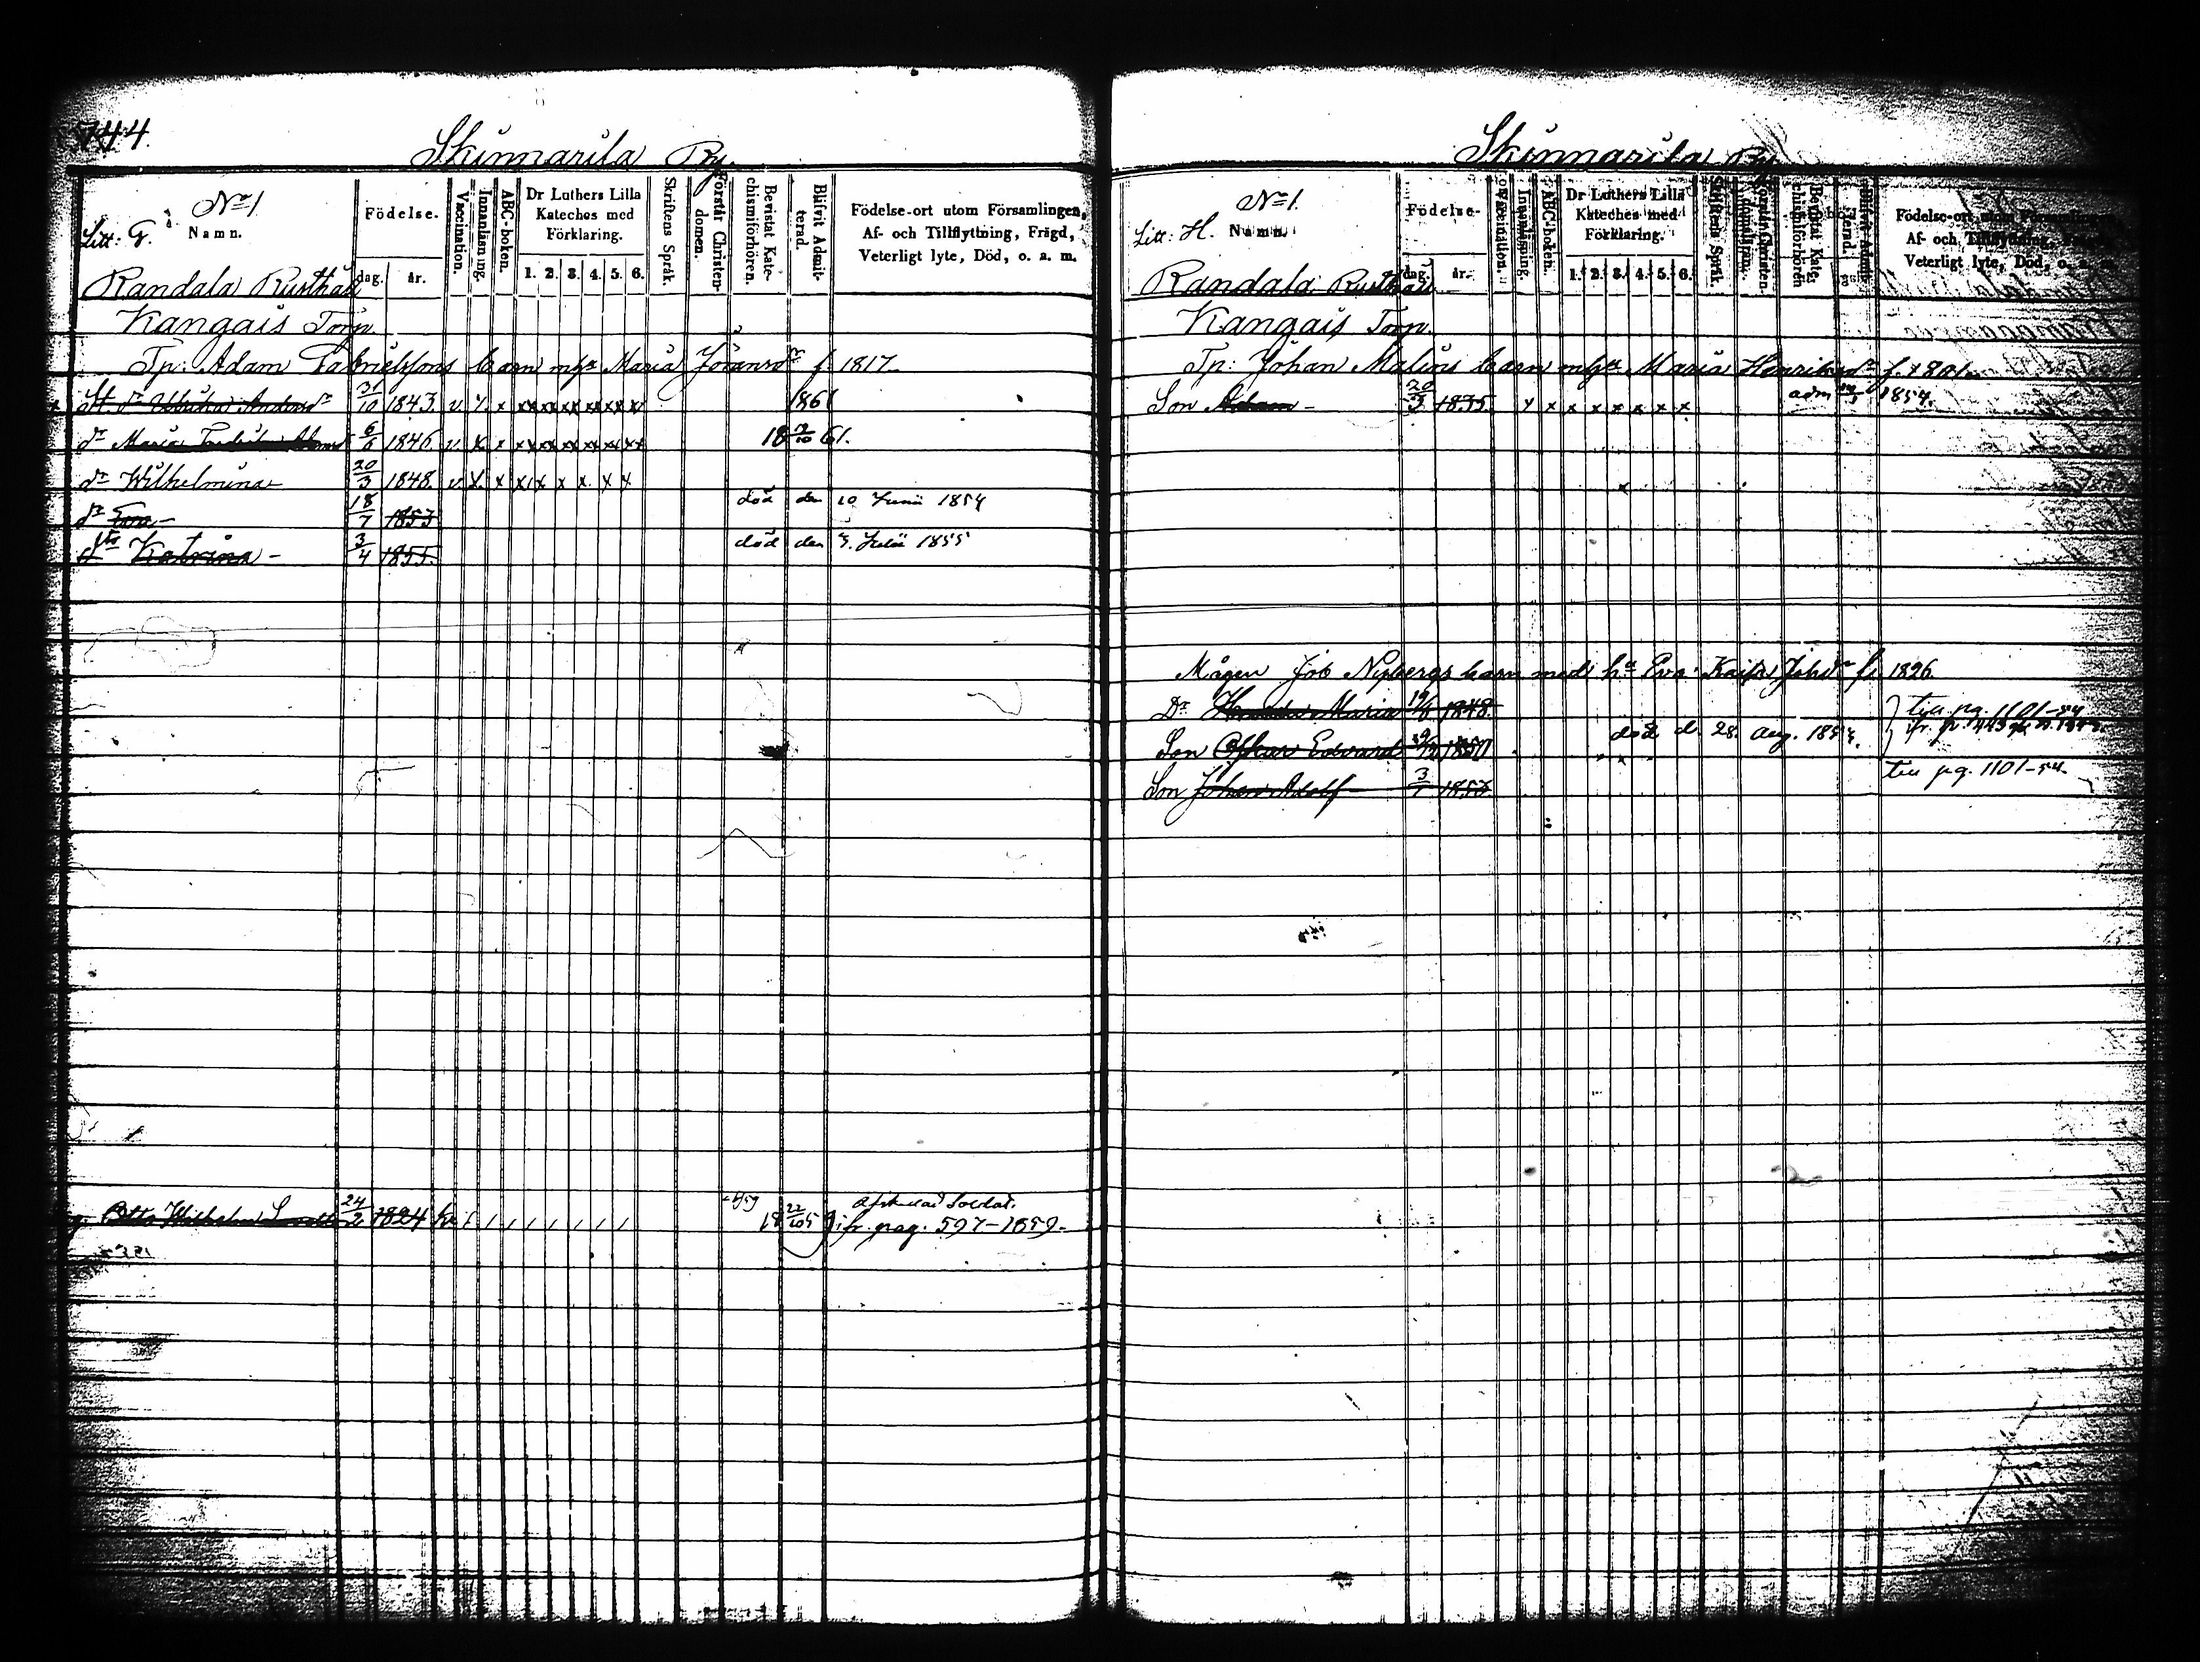 744.
Skinnarila By.
Litt: G. No 1.
Namn.
Födelse.
dag. år.
Vaccination.
Innanläsning.
ABC-boken.
Dr Luthers Lilla
Kateches med
Förklaring.
1. 2. 3. 4. 5. 6.
Skriftens Språk.
Förstår Christen-
domen.
Bevistat Kate-
chismiförhören.
Blifvit Admit-
terad.
Födelse-ort utom Församlingen,
Af- och Tillflyttning, Frägd,
Veterligt lyte, Död, o. a. m.
Randala Rusthåll
Kangais Torp.
Tp: Adam Gabrielssons barn m h:a Maria Jöransdr f. 1817.
31/10 1843. v. x x x x x x x x x 1861
dr Maria 6/6 1846. v. x x x x x x x x x 18 /10 61.
dr Wilhelmina 20/3 1848. v. x. x x x x x x x
dr Eva - 18/7 1853 död den 10 Junii 1854
Katrina - 3/4 1855. död den 3. Julii 1855
Otto Wilhelm 24/2 1824 18 22/10 59 Afskedad Soldat.
fr. pag. 597-1859.
Skinnarila By
Litt: H. No 1.
Namn.
Födelse-
dag. år.
Vaccination.
Innanläsning.
ABC-boken.
Dr Luthers Lilla
Kateches med
Förklaring.
1. 2. 3. 4. 5. 6.
Skriftens Språk.
Förstår Christen-
domen.
Bevistat Kate-
chismiförhören
Blifvit Admit-
terad.
Födelse-ort utom Församlingen,
Af- och Tillflyttning, Frägd,
Veterligt lyte, Död, o. a. m.
Randala Rusthåll
Kangais Torp.
Tp: Johan Malins barn m h:a Maria Henriksdr f. 1801.
Son Adam - 20/3 1835. x x x x x x x x adm 1854.
Mågen Job Nybergs barn med h:a Eva Kaisa Johsdr f. 1826.
Dr Maria 19/8 1848. till pg. 1101-54
Son Oskar Edvard 1850 död d. 28. aug. 1854.
Son Johan Adolf 3/1 1853. till pg. 1101-54.